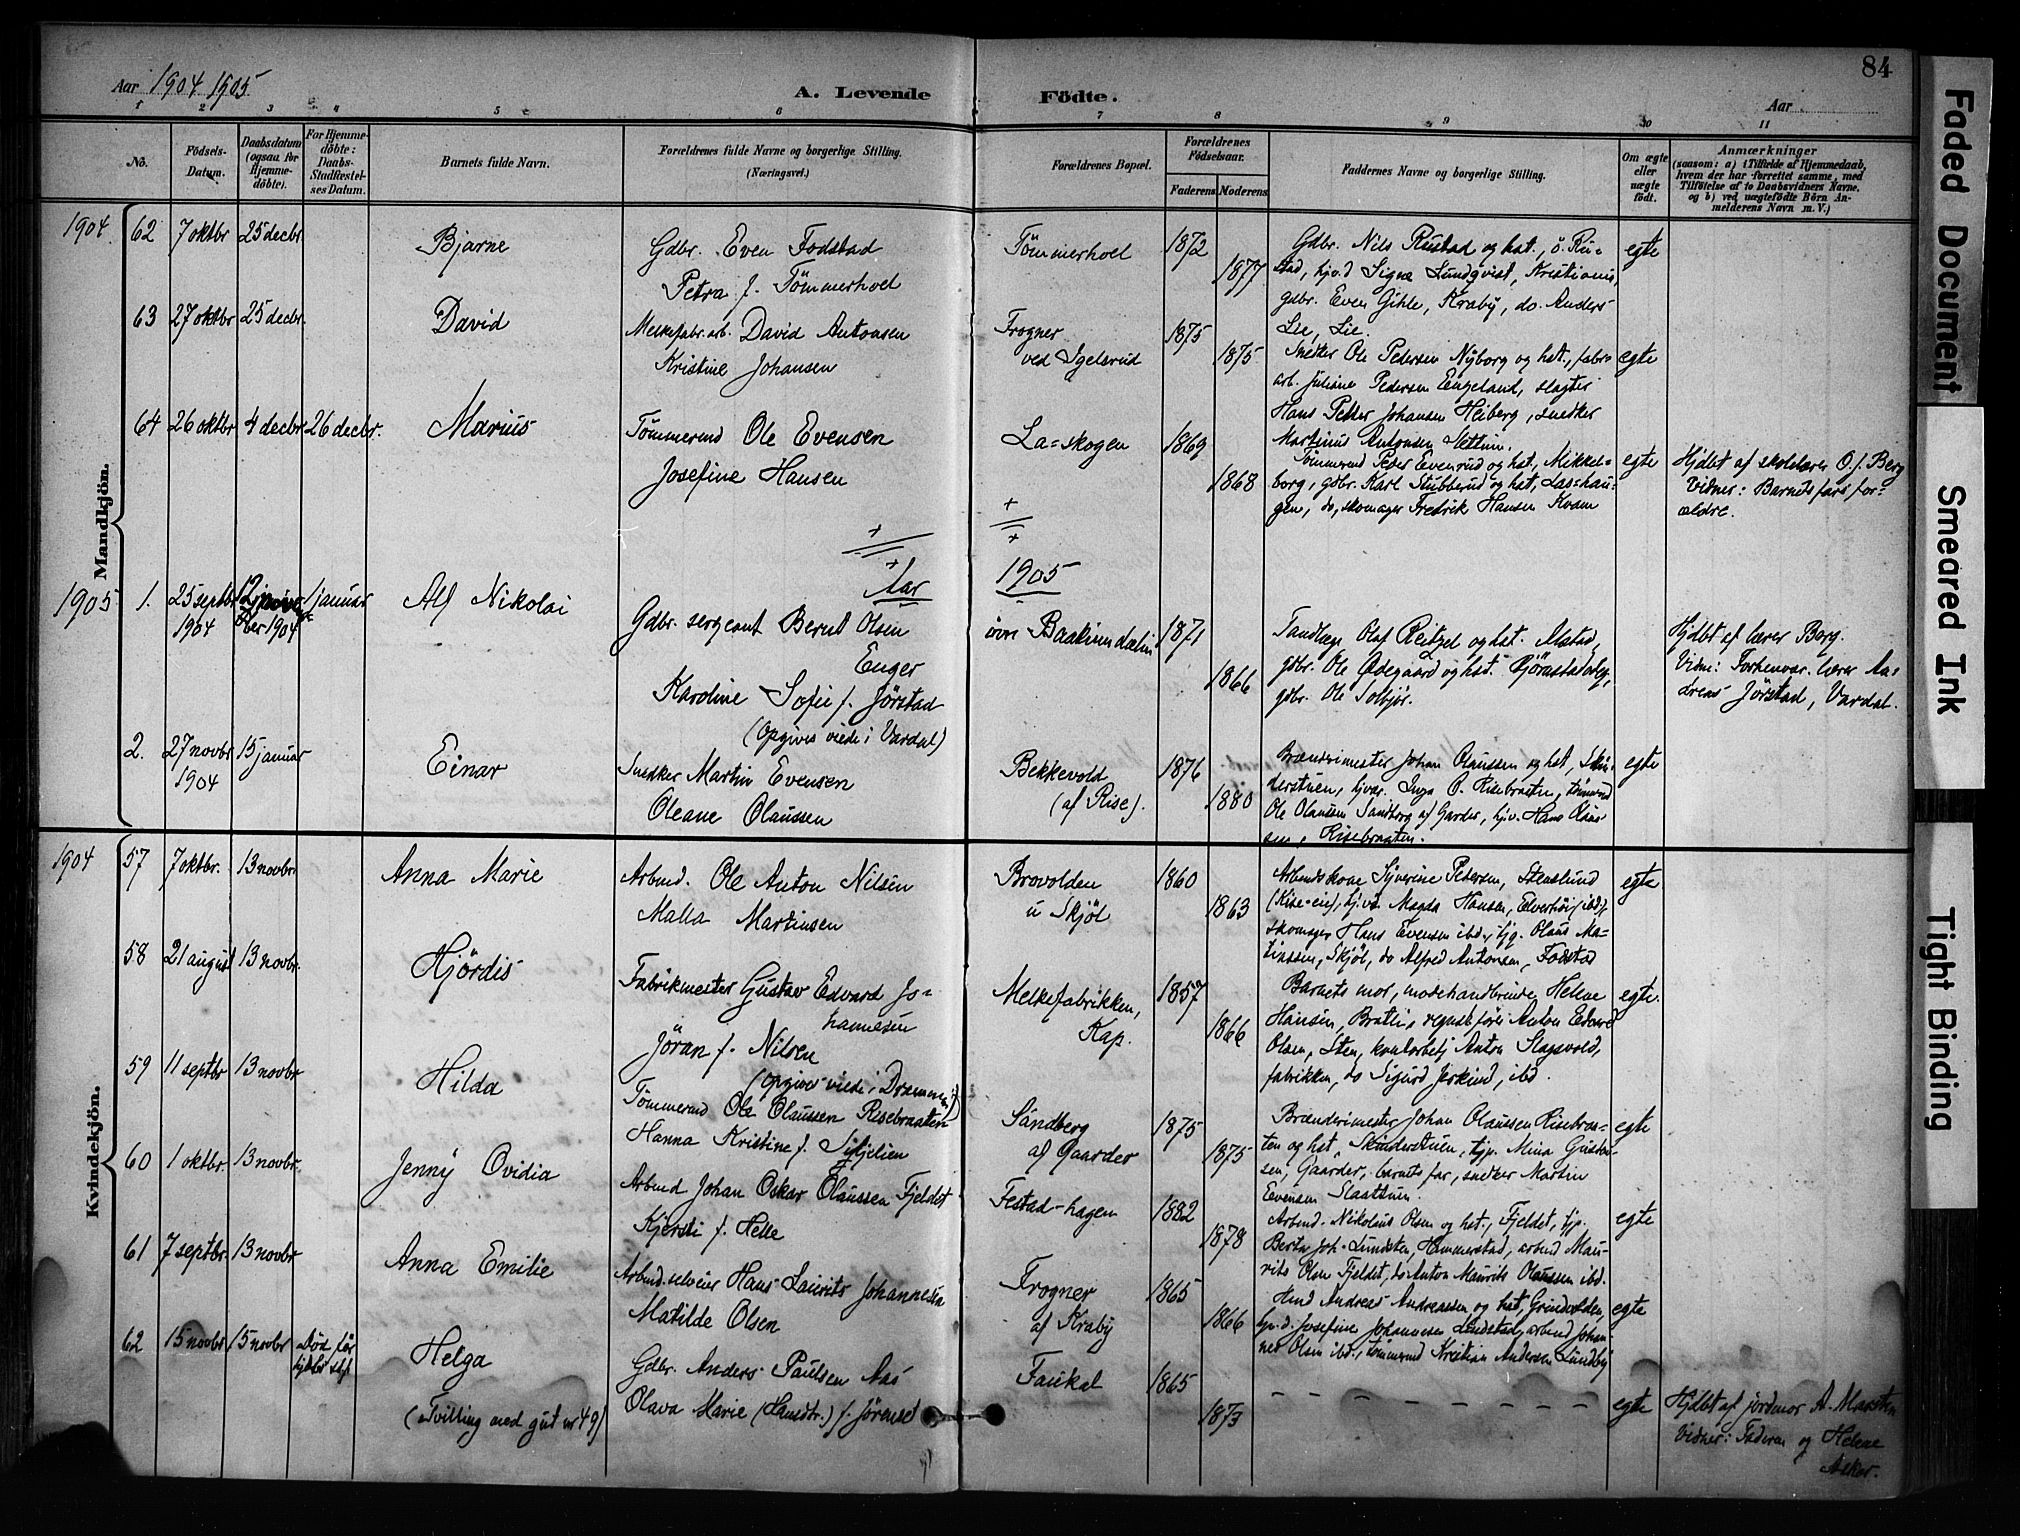 84
Aar 1904 1905
A. Levende Födte.
Aar
1 2 3 4 5 6 7 8 9 10 11
No.
Födsels-Datum.
Daabsdatum (ogsaa for Hjemmedöbte).
For Hjemmedöbte: Daabs-Stadfæstelses Datum.
Barnets fulde Navn.
Forældrenes fulde Navne og borgerlige Stilling. (Næringsvei.)
Forældrenes Bopæl.
Forældrenes Födselsaar.
Faderens Moderens
Faddernes Navne og borgerlige Stilling.
Om ægte eller uægte födt.
Anmærkninger
(saasom: a) i Tilfælde af Hjemmedaab,
hvem der har forrettet samme, med
Tilföielse af to Daabsvidners Navne.
og b) ved uægtefödte Börn An-
melderens Navn m. V.)
Mandkjön.
1904 62 7 oktbr 25 decbr. Bjarne
Gdbr. Even Fodstad
Petra f. Tömmerhoel
Tömmerhoel 1872 1877
Gdbr. Nils Rustad og hst., ö. Ru-
stad, hjv.d Signe Lundqvist, Kristiania,
gdbr. Even Gihle, Kraby, do. Anders
Lie, Lie.
egte
63 27 oktbr 25 decbr. David
Melkefabr.arb. David Antonsen
Kristine Johansen
Frogner
ved Igelsrud
1875 1875
Snedker Ole Pedersen Nyborg og hst., fabr-
arb. Juliane Pedersen Engeland, slagter
Hans Petter Johansen Heiberg, snedker
Martinus Antonsen Slettum.
egte
64 26 oktbr 4 decbr 26 decbr. Marius
Tömmermd Ole Evensen
Josefine Hansen
La=skogen 1869 1868
Tömmermd Peder Evenrud og hst., Mikkel=
borg, gdbr. Karl Stubberud og hst, Las=hau-
gen, do, skomager Fredrik Hansen Kvam
egte
Hjdbt af skolelærer O. J. Berg
Vidner: Barnets fars for=
ældre.
Aar 1905
1905 1. 25 septbr 1904 1 januar Alf Nikolai
Gdbr. sergeant Bernt Olsen
Enger
Karoline Sofie f. Jörstad
(opgives viede i Vardal)
övre Baakinndalen 1871 1866
Tandlæge Olaf Reitzel og hst.
gdbr. Ole Ödegaard og hst.
gdbr. Ole Solbjör.
Hjdbt af lærer Berg.
Vidne: Forhenvær. lærer An-
dreas Jörstad, Vardal.
2. 27 novbr 1904 15 januar Einar
Snedker Martin Evensen
Oleane Olaussen
Bekkevold
(af Rise).
1876 1880
Brænderimester Johan Olaussen og hst, Skin-
derstuen, hjvær. Inga O. Risebraaten, tömmermd
Ole Olaussen Sandberg af Garder, hjv. Hans Olaus-
sen, Risebraaten.
egte
Kvindekjön.
1904 57 7 oktbr. 13 novbr. Anna Marie
Arbmd. Ole Anton Nilsen
Malla Martinsen
Brovolden
u Skjöl
1860 1863
Arbmdskone Syverine Petersen, Stenslund
(Kise-eie), hjv. Magda Hansen, Elverhöi (ibd),
skomager Hans Evensen ibd., tjg. Olaus Ma-
tinssen, Skjöl, do Alfred Antonsen, Fodstad
egte
58 21 august 13 novbr. Hjördis
Fabrikmester Gustav Edvard Jo-
hannesen
Jöran f. Nilsen
(opgives viede i Drammen)
Melkefabrikken,
Kap.
1857 1866
Barnets mor, modehandlerinde Helene
Hansen, Bratli, regnskförer Anton Edvard
Olsen, Sten, kontorbetj Anton Slagsvold,
fabrikken, do Sigurd Jerkind, ibd.
egte.
59 11 septbr 13 novbr Hilda
Tömmermd Ole Olaussen Risebraaten
Hanna Kristine f. Sikjelien
Sandberg
af Gaarder
1875 1875
Brænderimester Johan Olaussen Risebraa-
ten og hst, Skinderstuen, tjp. Mina Gustav-
sen, Gaarder, barnets far, snedker Martin
Evensen Slaattum.
egte
60 1 oktbr. 13 novbr. Jenny Ovidia
Arbmd Johan Oskar Olaussen Fjeldet
Kjersti f. Helle
Festad-hagen
1882 1878
Arbmd. Nikolaus Olsen og hst., Fjeldet, tjp.
Berta Joh. Lundsten, Hammerstad, arbmd Mau-
rits Olsen Fjeldet, do Anton Maurits Olaussen ibd.
egte
61 7 septbr. 13 novbr Anna Emilie
Arbmd. selveier Hans Laurits Johannesen
Matilde Olsen
Frogner
af Kraby
1865 1866
Hmd Andreas Andreassen og hst, Grindvolden,
hjv.d. Josefine Johannesen Lundstad, arbmd Johan-
nes Olsen ibd., tömmermd Kristian Andersen Lundby
egte
62 15 novbr 15 novbr Död för
Helga
(Tvilling med gut nr 49)
Gdbr. Anders Paulsen Aas
Olava Marie (Hansdtr.) f. Jörenset
Faukal 1865 1873
egte
Hjdbt af jordmor A. Marsten
Vidner: Faderen og Helene
Asker.
Faded Document
Smeared Ink
Tight Binding